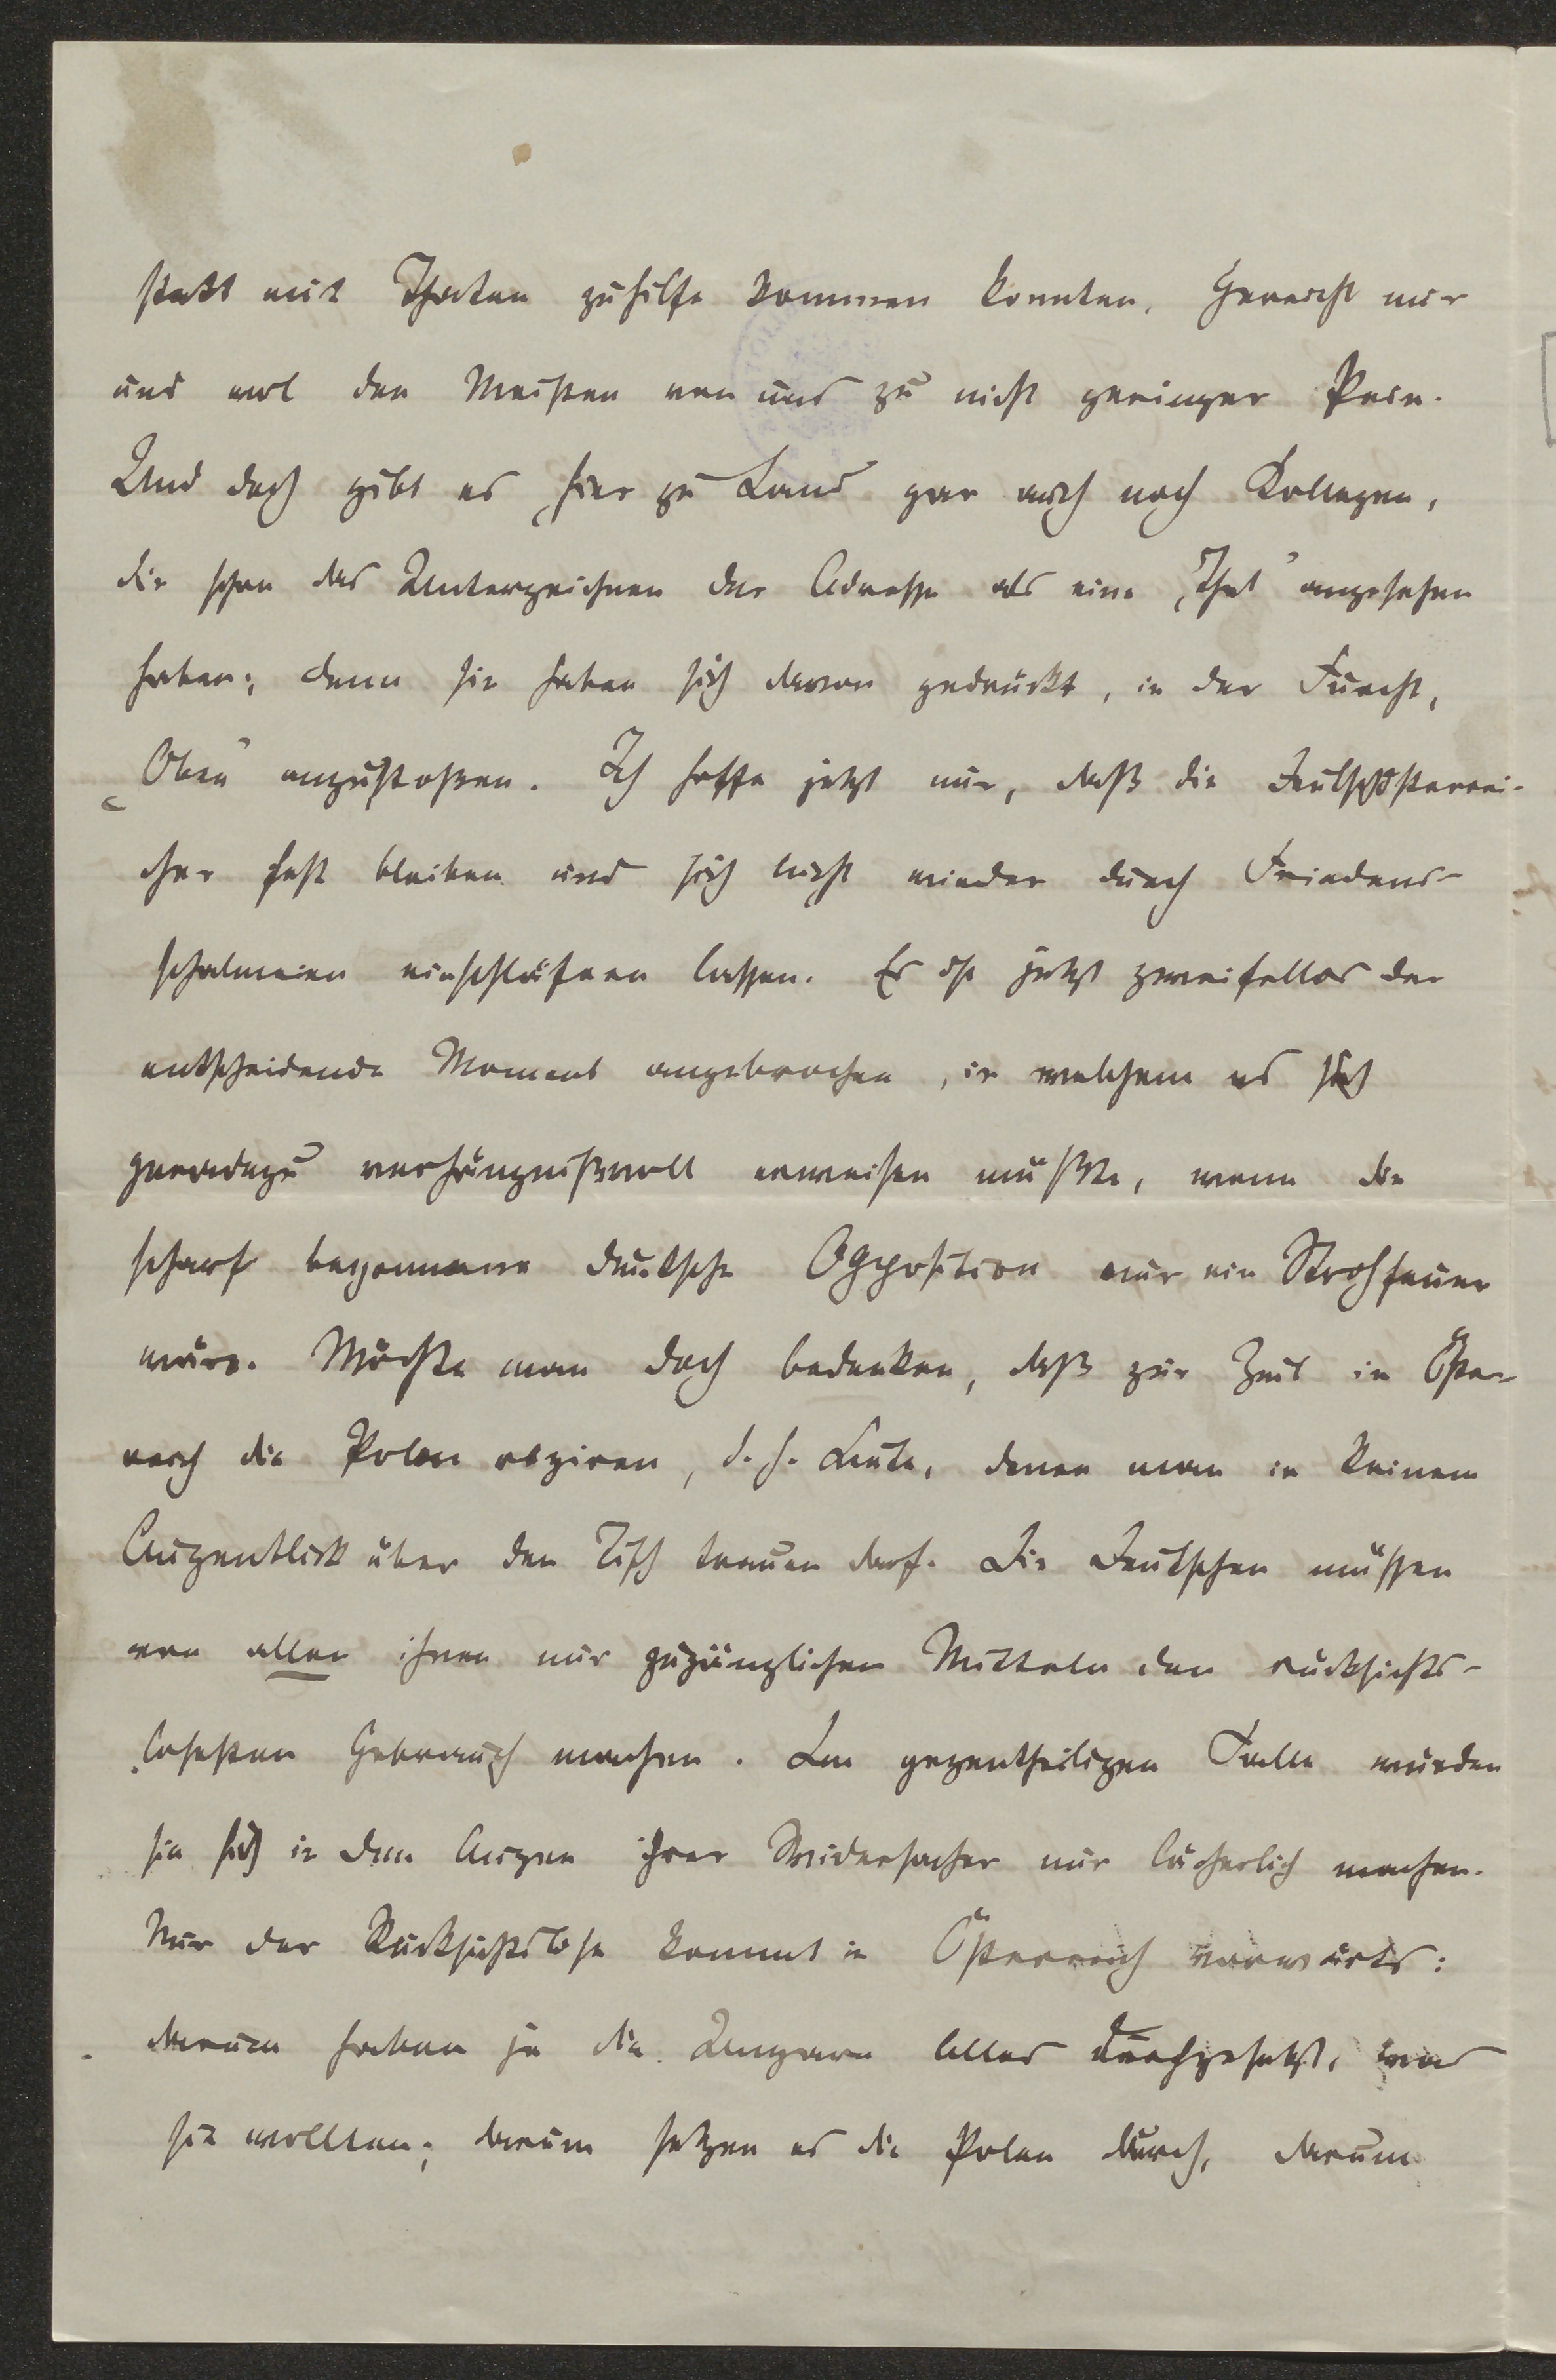 statt mit Thaten zuhilfe kommen konnten, gereicht mir
und wol den Meisten von uns zu nicht geringer Pein.
Und doch gibt es hier zu Land gar auch noch Kollegen,
die schon das Unterzeichnen der Adresse als eine „That“ angesehen
haben; denn sie haben sich davon gedrückt, in der Furcht,
„Oben“ anzustoßen. Ich hoffe jetzt nur, daß die Deutschösterrei-
cher fest bleiben und sich nicht wieder durch Friedens-
schalmeien einschläfern lassen. Es ist jetzt zweifellos der
entscheidende Moment angebrochen, in welchem es sich
geradezu verhängnißvoll erweisen müßte, wenn die
scharf begonnene deutsche Opposition nur ein Strohfeuer
wäre. Möchte man doch bedenken, daß zur Zeit in Öster-
reich die Polen regiren, d. h. Leute, denen man in keinem
Augenblick über den Tisch trauen darf. Die Deutschen müssen
von allen ihnen nur zugänglichen Mitteln den rücksichts-
losesten Gebrauch machen. Im gegentheiligen Falle würden
sie sich in den Augen ihrer Widersacher nur lächerlich machen.
Nur der Rücksichtslose kommt in Österreich vorwärts:
darum haben ja die Ungarn Alles durchgesetzt, was
sie wollten; darum setzen es die Polen durch, darum